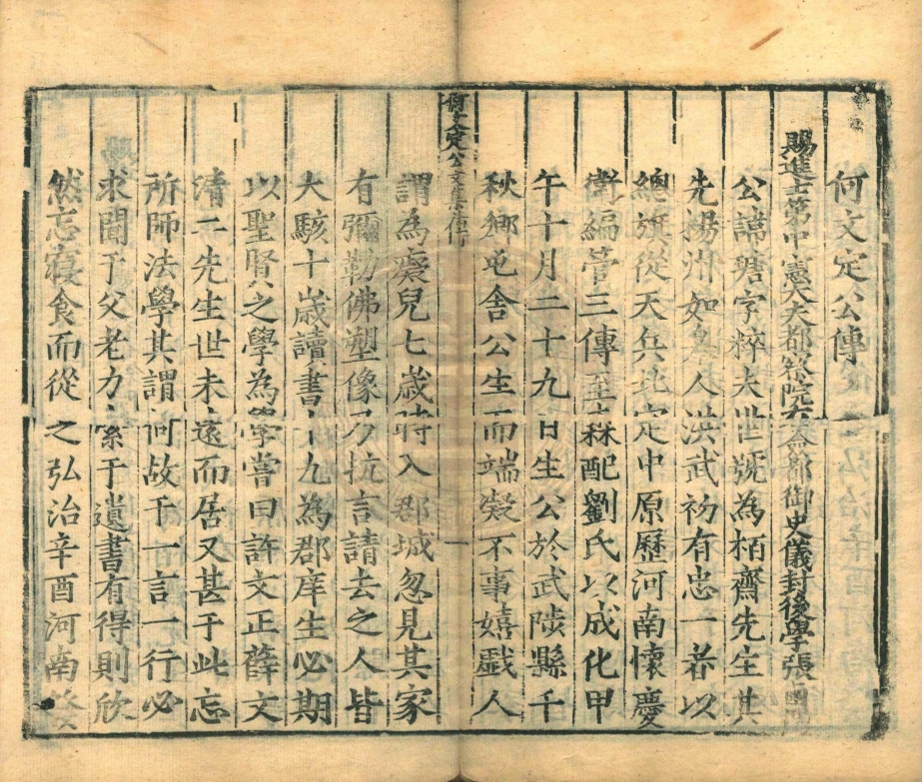 何文定公傳
賜進士第中憲大夫都察院右僉都御史儀封後學張
公諱瑭字粹夫世號為栢齋先生其
先揚州如皋人洪武初有忠一者以
總旗從天兵北定中原歷河南懷慶
衛編管三傳至森配劉氏以成化甲
午十月二十九日生公於武陟縣千
秋鄉屯舍公生而端凝不事嬉戲人
何文定公文集傳
一
謂為癡兒七歲時入郡城忽見其家
有彌勒佛塑像乃抗言請去之人皆
大駭十歲讀書十九為郡庠生必期
以聖賢之學為學嘗曰許文正薛文
清二先生世未遠而居又甚于此忘
所師法學其謂何故于一言一行必
求聞于父老力索于遺書有得則欣
然忘寢食而從之弘治辛酉河南